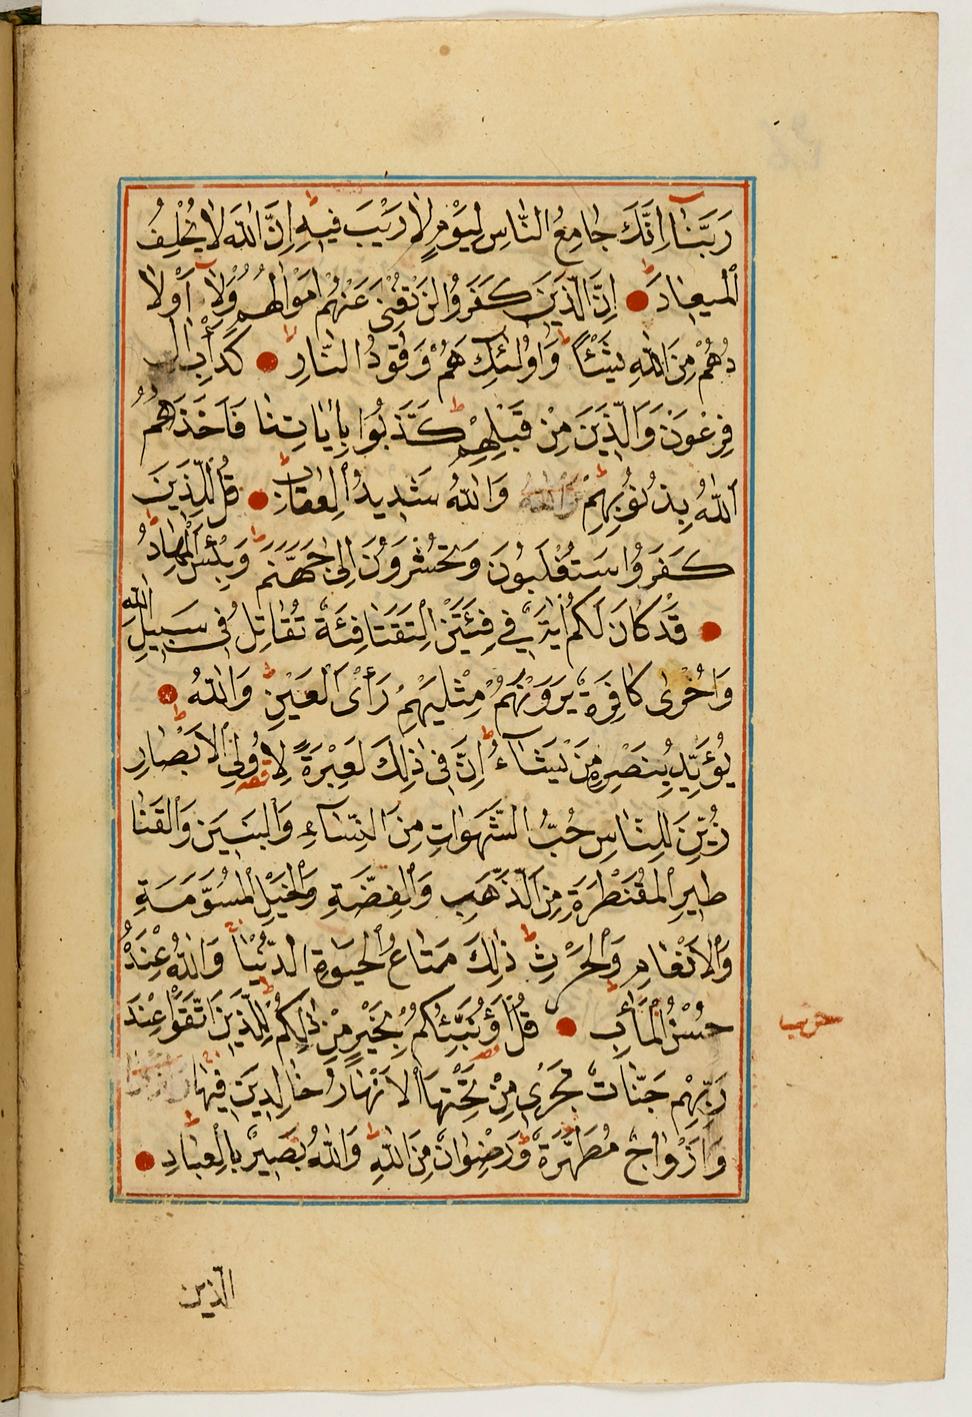 رَبَّنَٓا اِنَّكَ جَامِعُ النَّاسِ لِيَوْمٍ لَا رَيْبَ فِيهِ اِنَّ اللّٰهَ لَا يُخْلِفُ
الْمِيعَادَ اِنَّ الَّذِينَ كَفَرُوا لَنْ تُغْنِىَ عَنْهُمْ اَمْوَالُهُمْ وَلَٓا اَوْلَا
دُهُمْ مِنَ اللّٰهِ شَيْئًا وَاُولٰئِكَ هُمْ وَقُودُ النَّارِ كَدَاْبِ اٰلِ
فِرْعَوْنَ وَالَّذِينَ مِنْ قَبْلِهِمْ كَذَّبُوا بِاٰيَاتِنَا فَاَخَذَهُمُ
اللّٰهُ بِذُنُوبِهِمْ وَاللّٰهُ وَاللّٰهُ شَدِيدُ الْعِقَابِ قُلْ لِلَّذِينَ
كَفَرُوا سَتُغْلَبُونَ وَتُحْشَرُونَ اِلٰى جَهَنَّمَ وَبِئْسَ الْمِهَادُ
قَدْ كَانَ لَكُمْ اٰيَةٌ فِى فِئَتَيْنِ الْتَقَتَا فِئَةٌ تُقَاتِلُ فِى سَبِيلِ اللّٰهِ
وَاُخْرٰى كَافِرَةٌ يَرَوْنَهُمْ مِثْلَيْهِمْ رَاْىَ الْعَيْنِ وَاللّٰهُ
يُؤَيِّدُ بِنَصْرِهِ مَنْ يَشَٓاءُ اِنَّ فِى ذٰلِكَ لَعِبْرَةً لِاُولِى الْاَبْصَارِ
زُيِّنَ لِلنَّاسِ حُبُّ الشَّهَوَاتِ مِنَ النِّسَٓاءِ وَالْبَنِينَ وَالْقَنَا
طِيرِ الْمُقَنْطَرَةِ مِنَ الذَّهَبِ وَالْفِضَّةِ وَالْخَيْلِ الْمُسَوَّمَةِ
وَالْاَنْعَامِ وَالْحَرْثِ ذٰلِكَ مَتَاعُ الْحَيٰوةِ الدُّنْيَا وَاللّٰهُ عِنْدَهُ
حُسْنُ الْمَاٰبِ قُلْ اَؤُنَبِّئُكُمْ بِخَيْرٍ مِنْ ذٰلِكُمْ لِلَّذِينَ اتَّقَوْا عِنْدَ
حزب
رَبِّهِمْ جَنَّاتٌ تَجْرِى مِنْ تَحْتِهَا الْاَنْهَارُ خَالِدِينَ فِيهَا
وَاَزْوَاجٌ مُطَهَّرَةٌ وَرِضْوَانٌ مِنَ اللّٰهِ وَاللّٰهُ بَصِيرٌ بِالْعِبَادِ
الذين